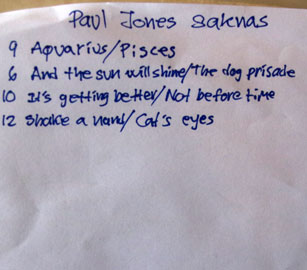 Paul Jones saknas
9 Aquarius/Pisces
6 And the sun will shine/The dog prisade
10 It's getting better/Not before time
12 Shake a hand/Cat's eyes